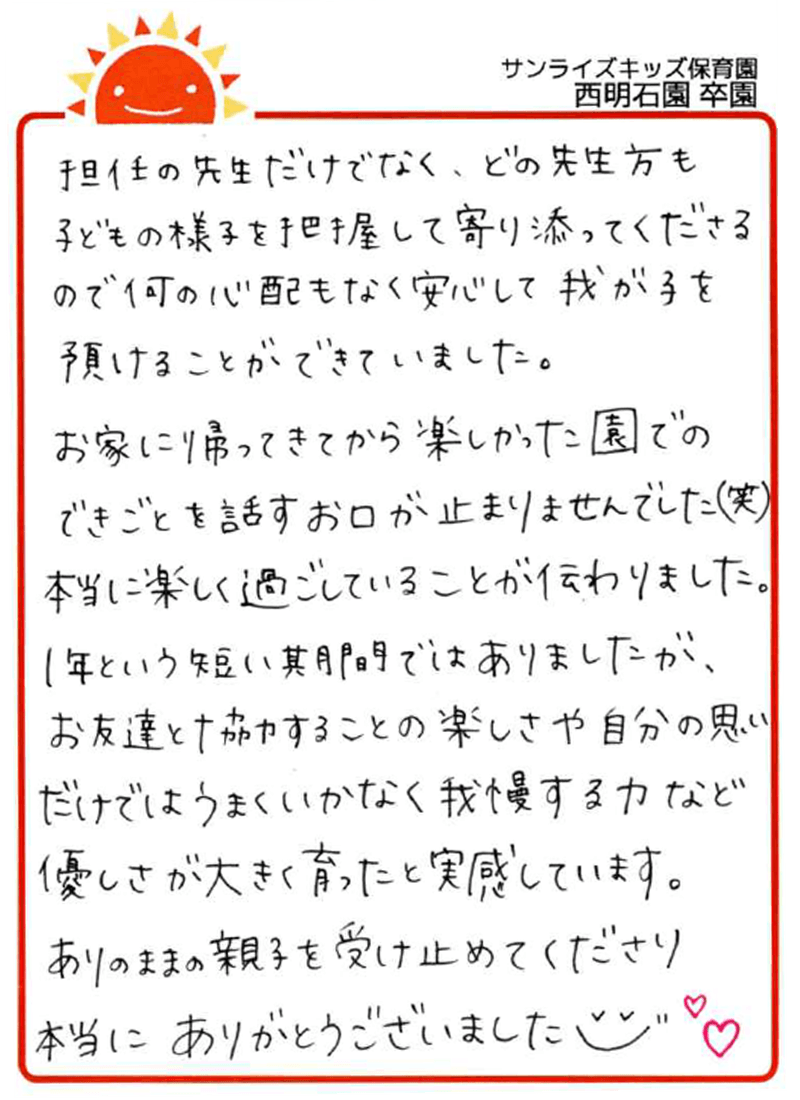 サンライズキッズ保育園
西明石園 卒園
担任の先生だけでなく、どの先生方も
子どもの様子を把握して寄り添ってくださる
ので何の心配もなく安心して我が子を
預けることができていました。
お家に帰ってきてから楽しかった園での
できごとを話すお口が止まりませんでした(笑)
本当に楽しく過ごしていることが伝わりました。
1年という短い期間ではありましたが、
お友達と協力することの楽しさや自分の思い
だけではうまくいかなく我慢する力など
優しさが大きく育ったと実感しています。
ありのままの親子を受け止めてくださり
本当に ありがとうございました